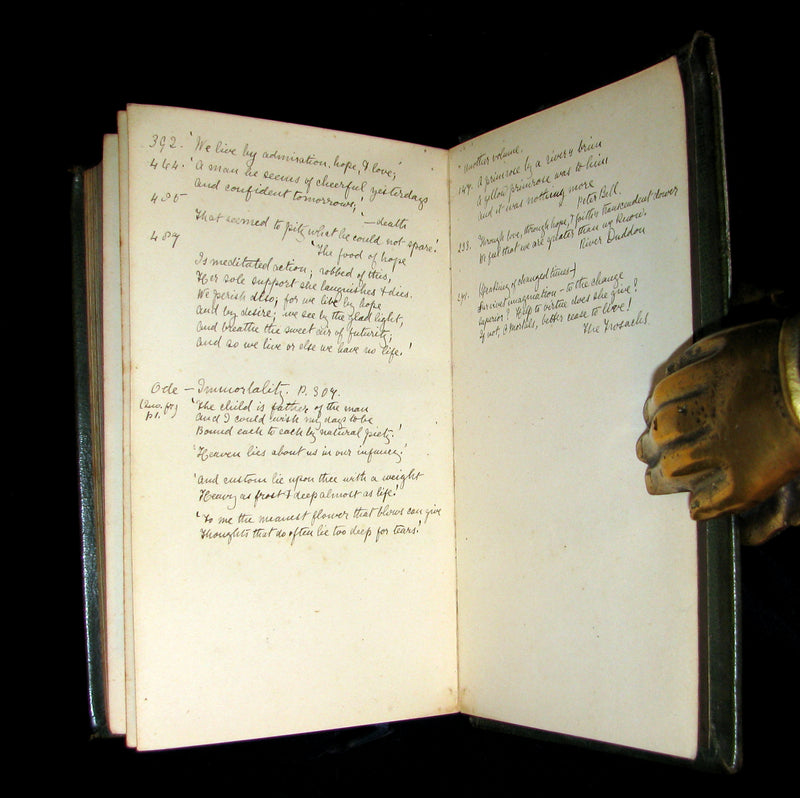 392. 'We live by admiration, hope, & love';
464. 'A man he seems of cheerful yesterdays
and confident tomorrows;'
485 '—death
That seemed to pity what he could not spare.'
489 'The food of hope
Is meditated action; robbed of this,
Her sole support she languishes & dies.
We perish also; for we live by hope
And by desire; we see by the glad light,
And breathe the sweet air of futurity;
And so we live or else we have no life.'
Ode — Immortality. P. 309.
p1. 'The child is father of the man
And I could wish my days to be
Bound each to each by natural piety.'
'Heaven lies about us in our infancy.'
'and custom lie upon thee with a weight
Heavy as frost & deep almost as life.'
'To me the meanest flower that blows can give
Thoughts that do often lie too deep for tears.'
another volume.
A primrose by a river's brim
A yellow primrose was to him
And it was nothing more
Peter Bell.
Through love, through hope, & faith's transcendent dower
We feel that we are greater than we know.
River Duddon
(Speaking of changed times—)
Survives imagination — to the change
Superior? Help to virtue does she give?
If not, O Mortals, better cease to live!
The Trosachs.